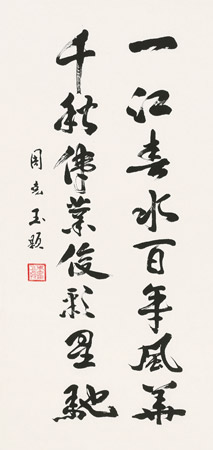 一江春水百年風華
千秋偉業俊彩星馳
周克玉題